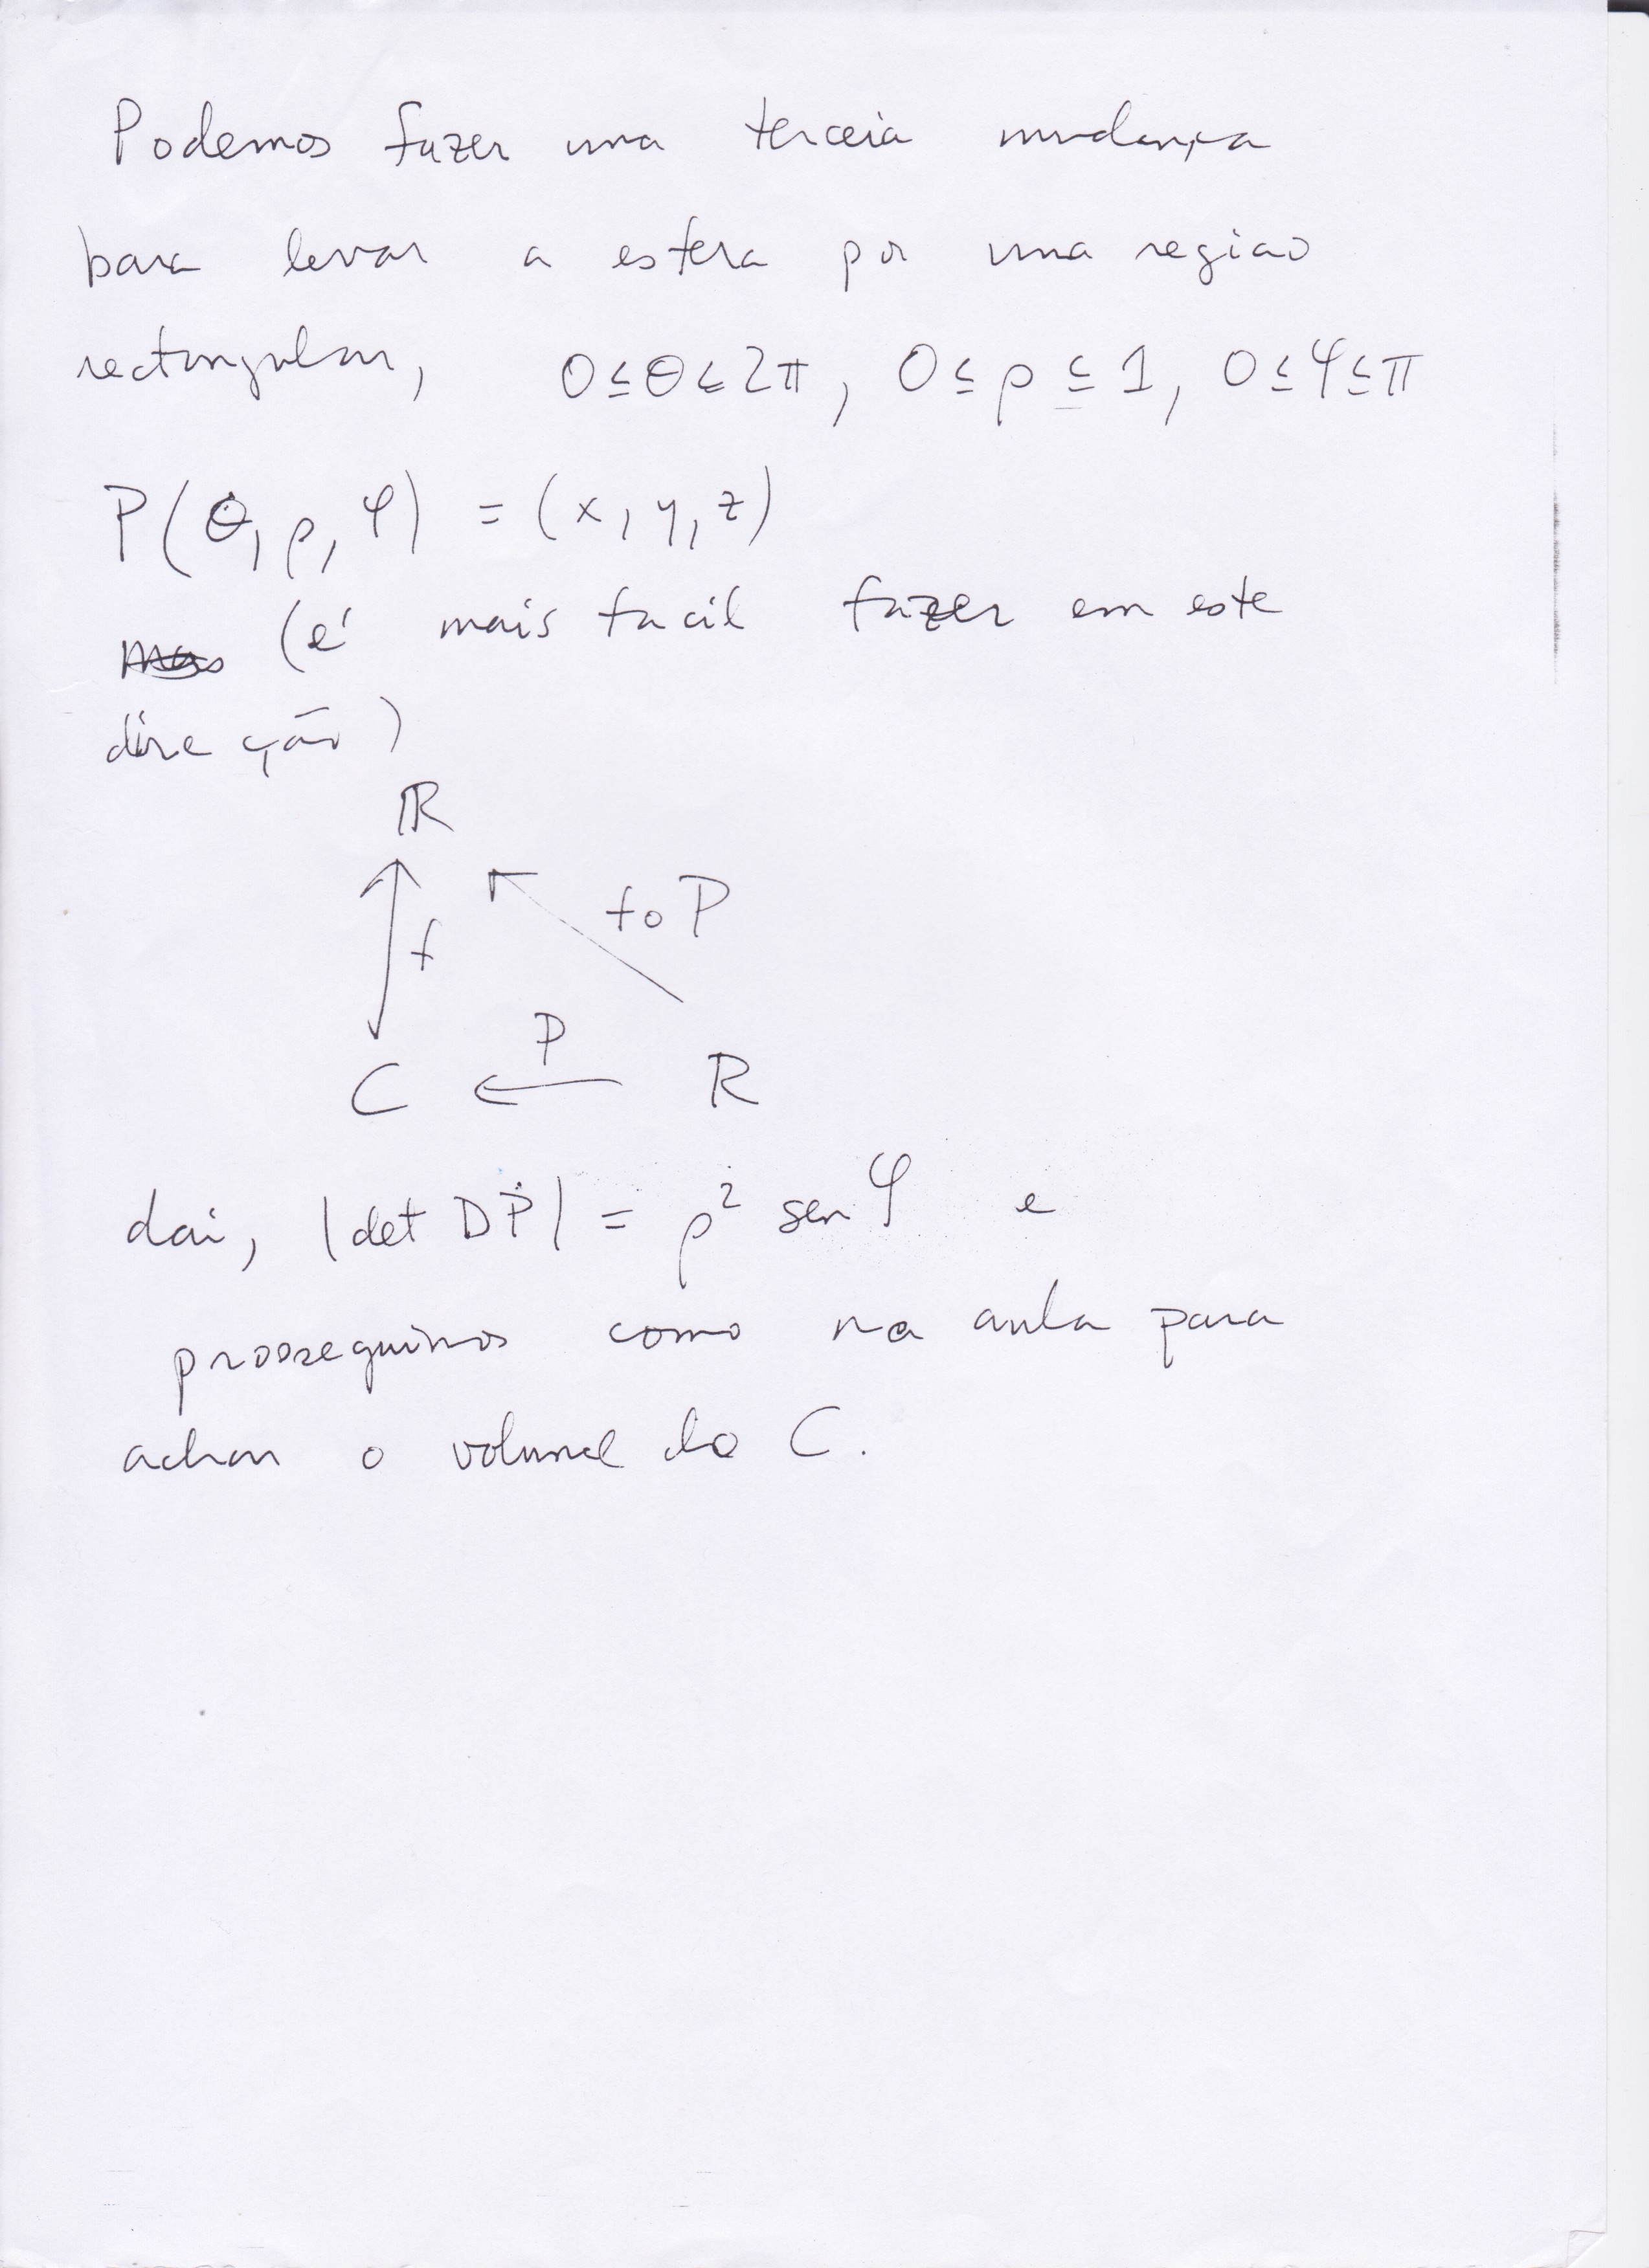 Podemos fazer uma terceia mudança
para levar a esfera por uma regiao
rectangular, 0≤θ≤2π, 0≤ρ≤1, 0≤φ≤π
P(θ,ρ,φ) = (x,y,z)
(é mais facil fazer em este
direção)
ℝ
f∘P
f
P
C R
dai, |det DP| = ρ² sen φ e
prosseguimos como na aula para
achar o volume do C.